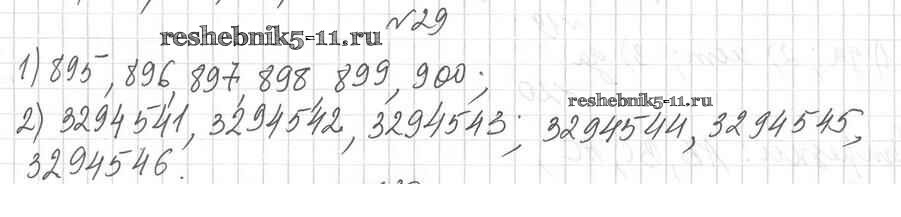 №29
reshebnik5-11.ru
1) 895, 896, 897, 898 899, 900;
reshebnik5-11.ru
2) 3294541, 3294542, 3294543; 3294544, 3294545,
3294546.